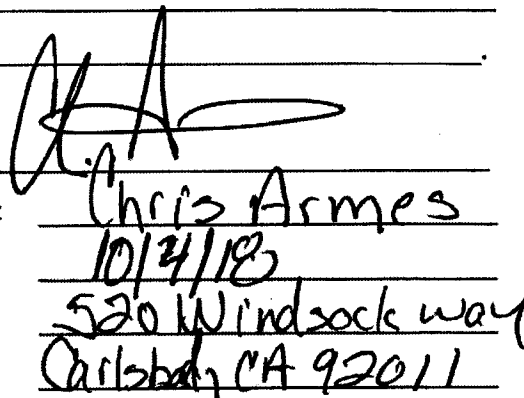 Chris Armes
10/4/18
520 Windsock way
Carlsbad, CA 92011